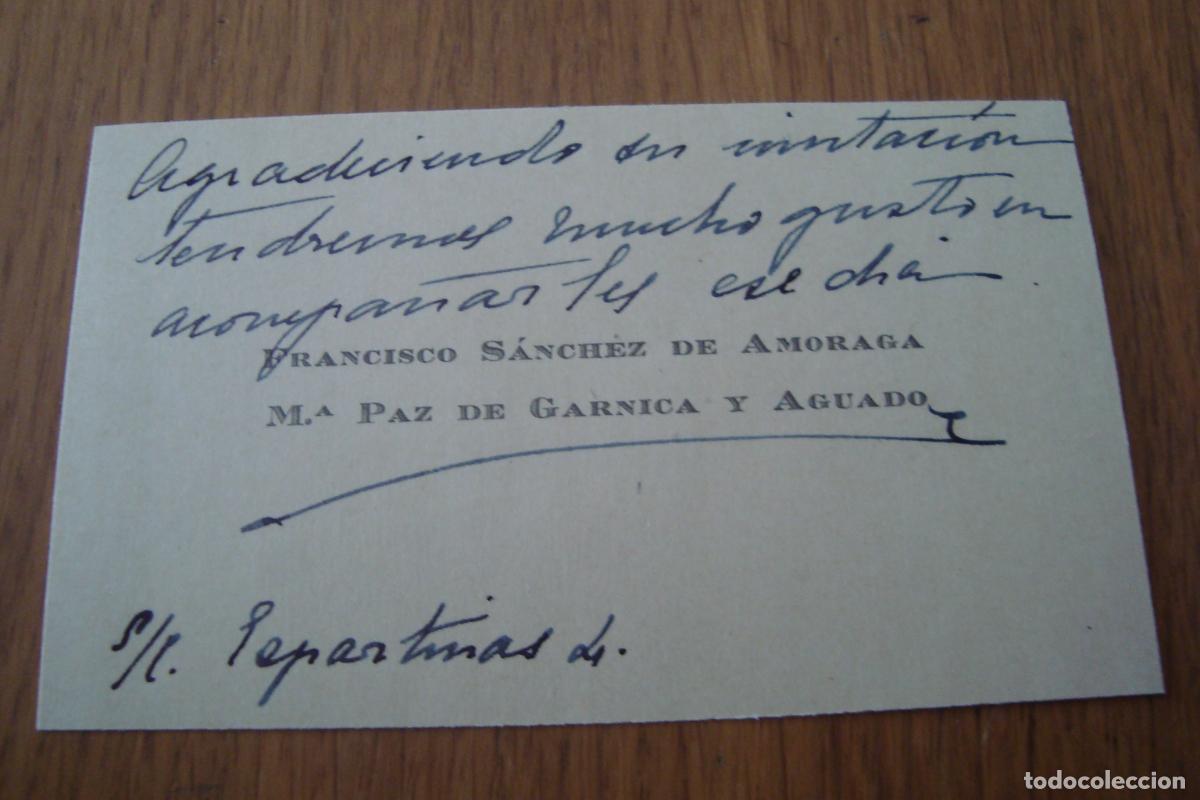 Agradeciendo su invitación
tendremos mucho gusto en
acompañarles ese día
FRANCISCO SÁNCHEZ DE AMORAGA
M.ª PAZ DE GARNICA Y AGUADO
s/c. Espartinas 4.
todocoleccion